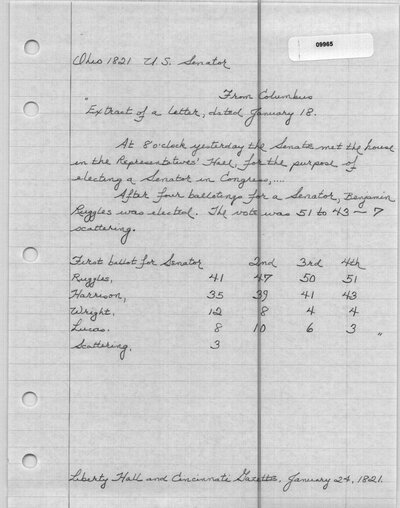 09965
Ohio 1821 U.S. Senator
From Columbus
"Extract of a letter, dated January 18.
At 8 o'clock yesterday the Senate met the house
in the Representatives' Hall, for the purpose of
electing a Senator in Congress,....
After four ballotings for a Senator, Benjamin
Ruggles was elected. The vote was 51 to 43 — 7
scattering.
First ballot for Senator 2nd 3rd 4th
Ruggles, 41 47 50 51
Harrison, 35 39 41 43
Wright, 12 8 4 4
Lucas. 8 10 6 3 "
Scattering, 3
Liberty Hall and Cincinnati Gazette. January 24, 1821.